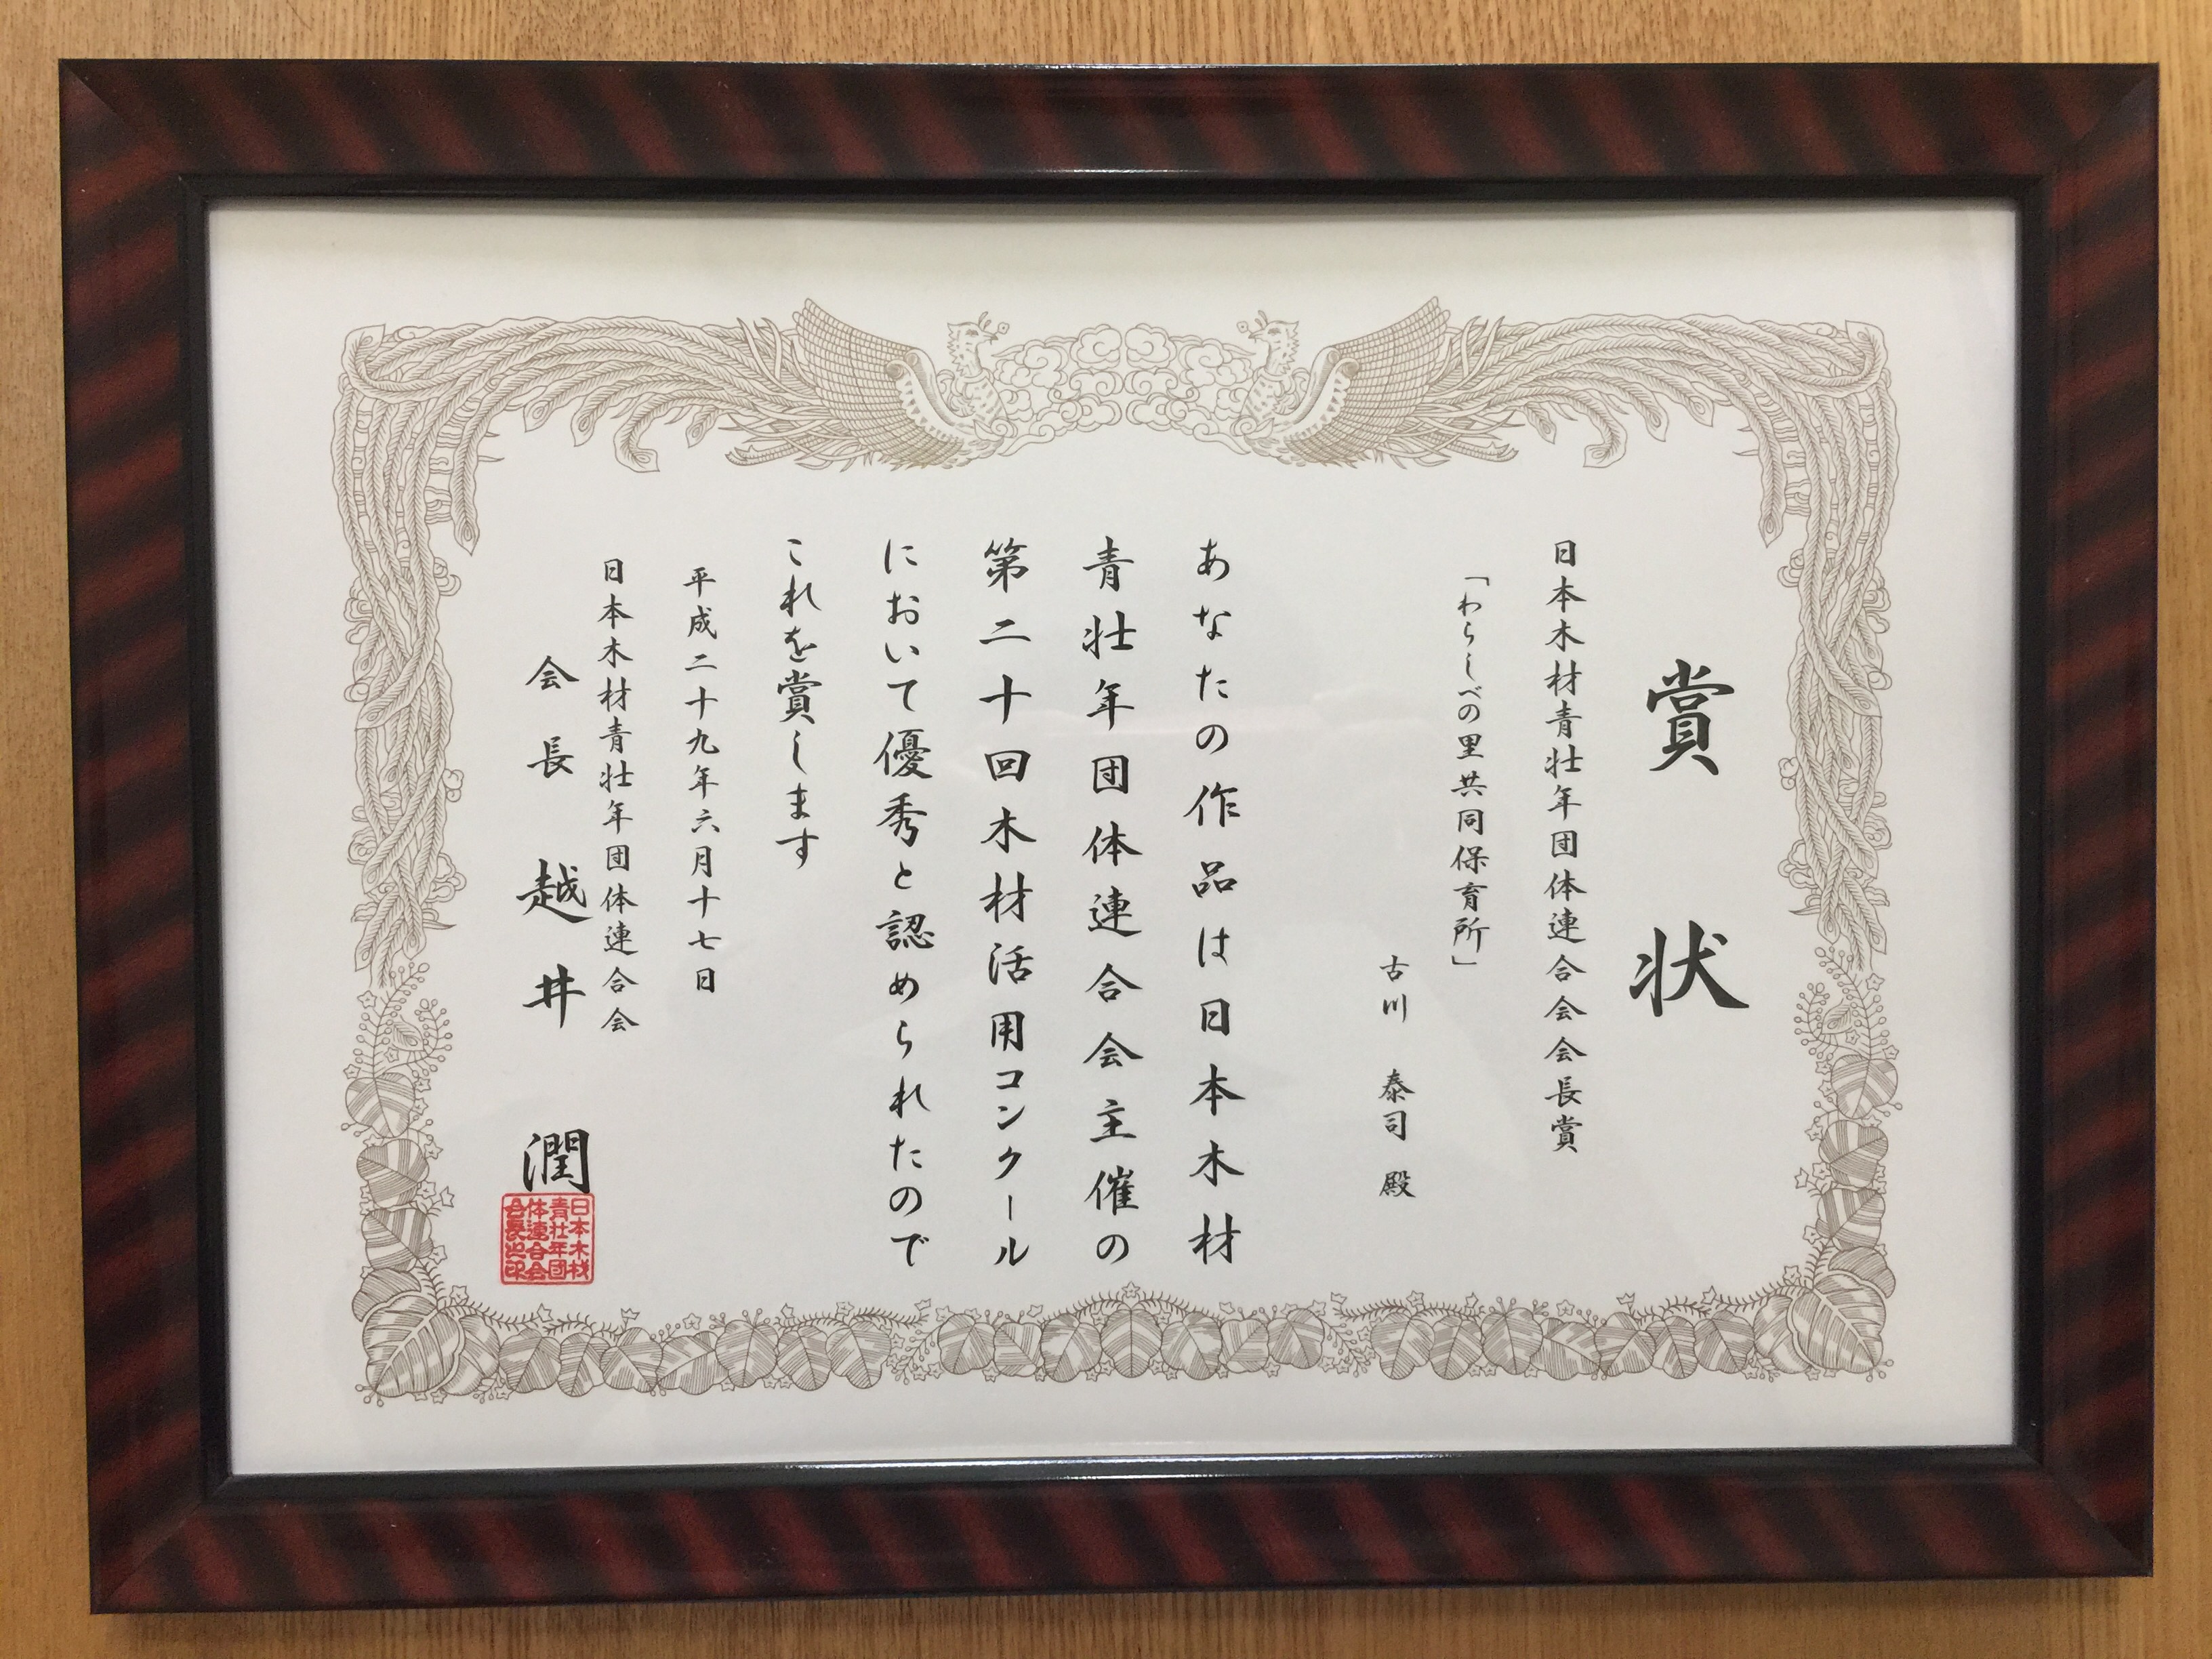 賞状
日本木材青壮年団体連合会会長賞
「わらしべの里共同保育所」
古川 泰司 殿
あなたの作品は日本木材
青壮年団体連合会主催の
第二十回木材活用コンクール
において優秀と認められたので
これを賞します
平成二十九年六月十七日
日本木材青壮年団体連合会
会長 越井 潤
日本木材
青壮年団
体連合会
会長之印